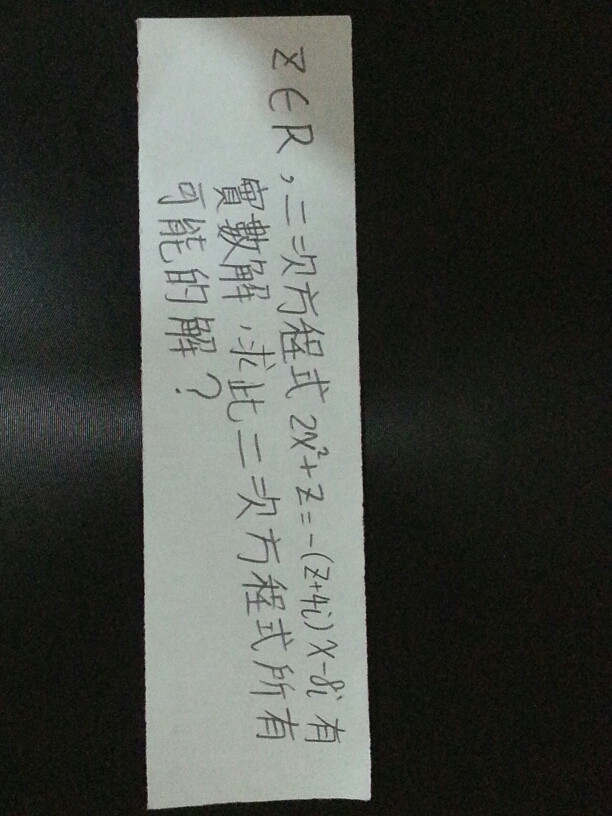 Z∈R，二次方程式 2x²+z=-(z+4i)x-8i 有
實數解，求此二次方程式所有
可能的解？